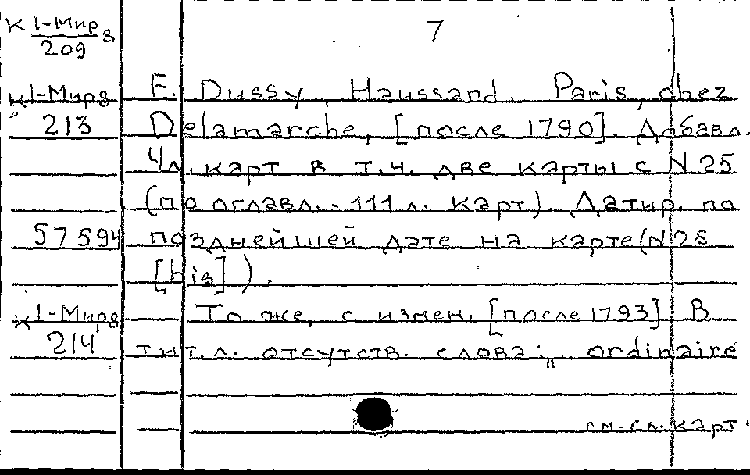 К 1-Мир 8 7
209
К 1-Мир 8 E. Dussy, Haussand. Paris, chez
213 Delamarche, [после 1790]. Добавл.
4 л. карт в т.ч. две карты с N 25
(по оглавл. - 111 л. карт). Датир. по
57594 позднейшей дате на карте (N 25
[bis]).
К 1-Мир 8 То же, с измен. [после 1793] В
214 тит. л. отсутств. слова: „ ordinaire
см. сл. карт.